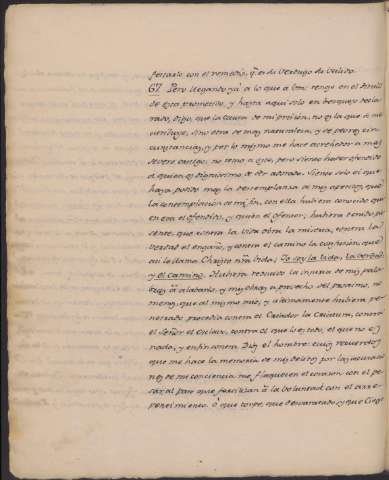 fesarlo con el remedio, q.e es du Verdugo de Delido
67. Pero llegando yá a lo que a Vm. tengo en el
de esta prometido, y hasta aqui solo en bosquejo decla
rado, digo, que la causa de mi prision, no es la que se me
atribuye, sino otra de mas naturaleza, y de peores cir
cunstancias, y por lo mismo me hace acrehedor a mas
severo castigo: no temo a este, pero siento haver ofendido
á quien es dignissimo de ser adorado. Siento solo el que
haya podido mas la destemplanza de mis apetitos, que
la contemplacion de mi fin, con ella huviera conocido que
era el ofendido, y quien el ofensor; huviera tenido pre
sente, que contra la Vida obra la misera, contra la
Verdad el engaño, y contra el camino la confusion, que
asi lo llama Christo ntra Vida; Yo soy la Vida, la Verdad
y el Camino. Huviera reducido la injuria de mis pala
bras á alabarlo, y mis obras a provecho del proximo, no
menos, que al mismo mio, y ultimamente huviera pe
netrado procedia contra el Criador la Criatura, contra
el Señor el esclavo, contra el que lo es todo, el que no es
nada, y en fin contra Dios el hombre: cuios recuerdos
que me hace la memoria de mis delitos por las acusacio
nes de mi conciencia me flaquean el corazon con el pe
sar, al paso que fertilizan á la Voluntad con el arre
pentimiento. O que torpe, que desvaratado, y que Ciego